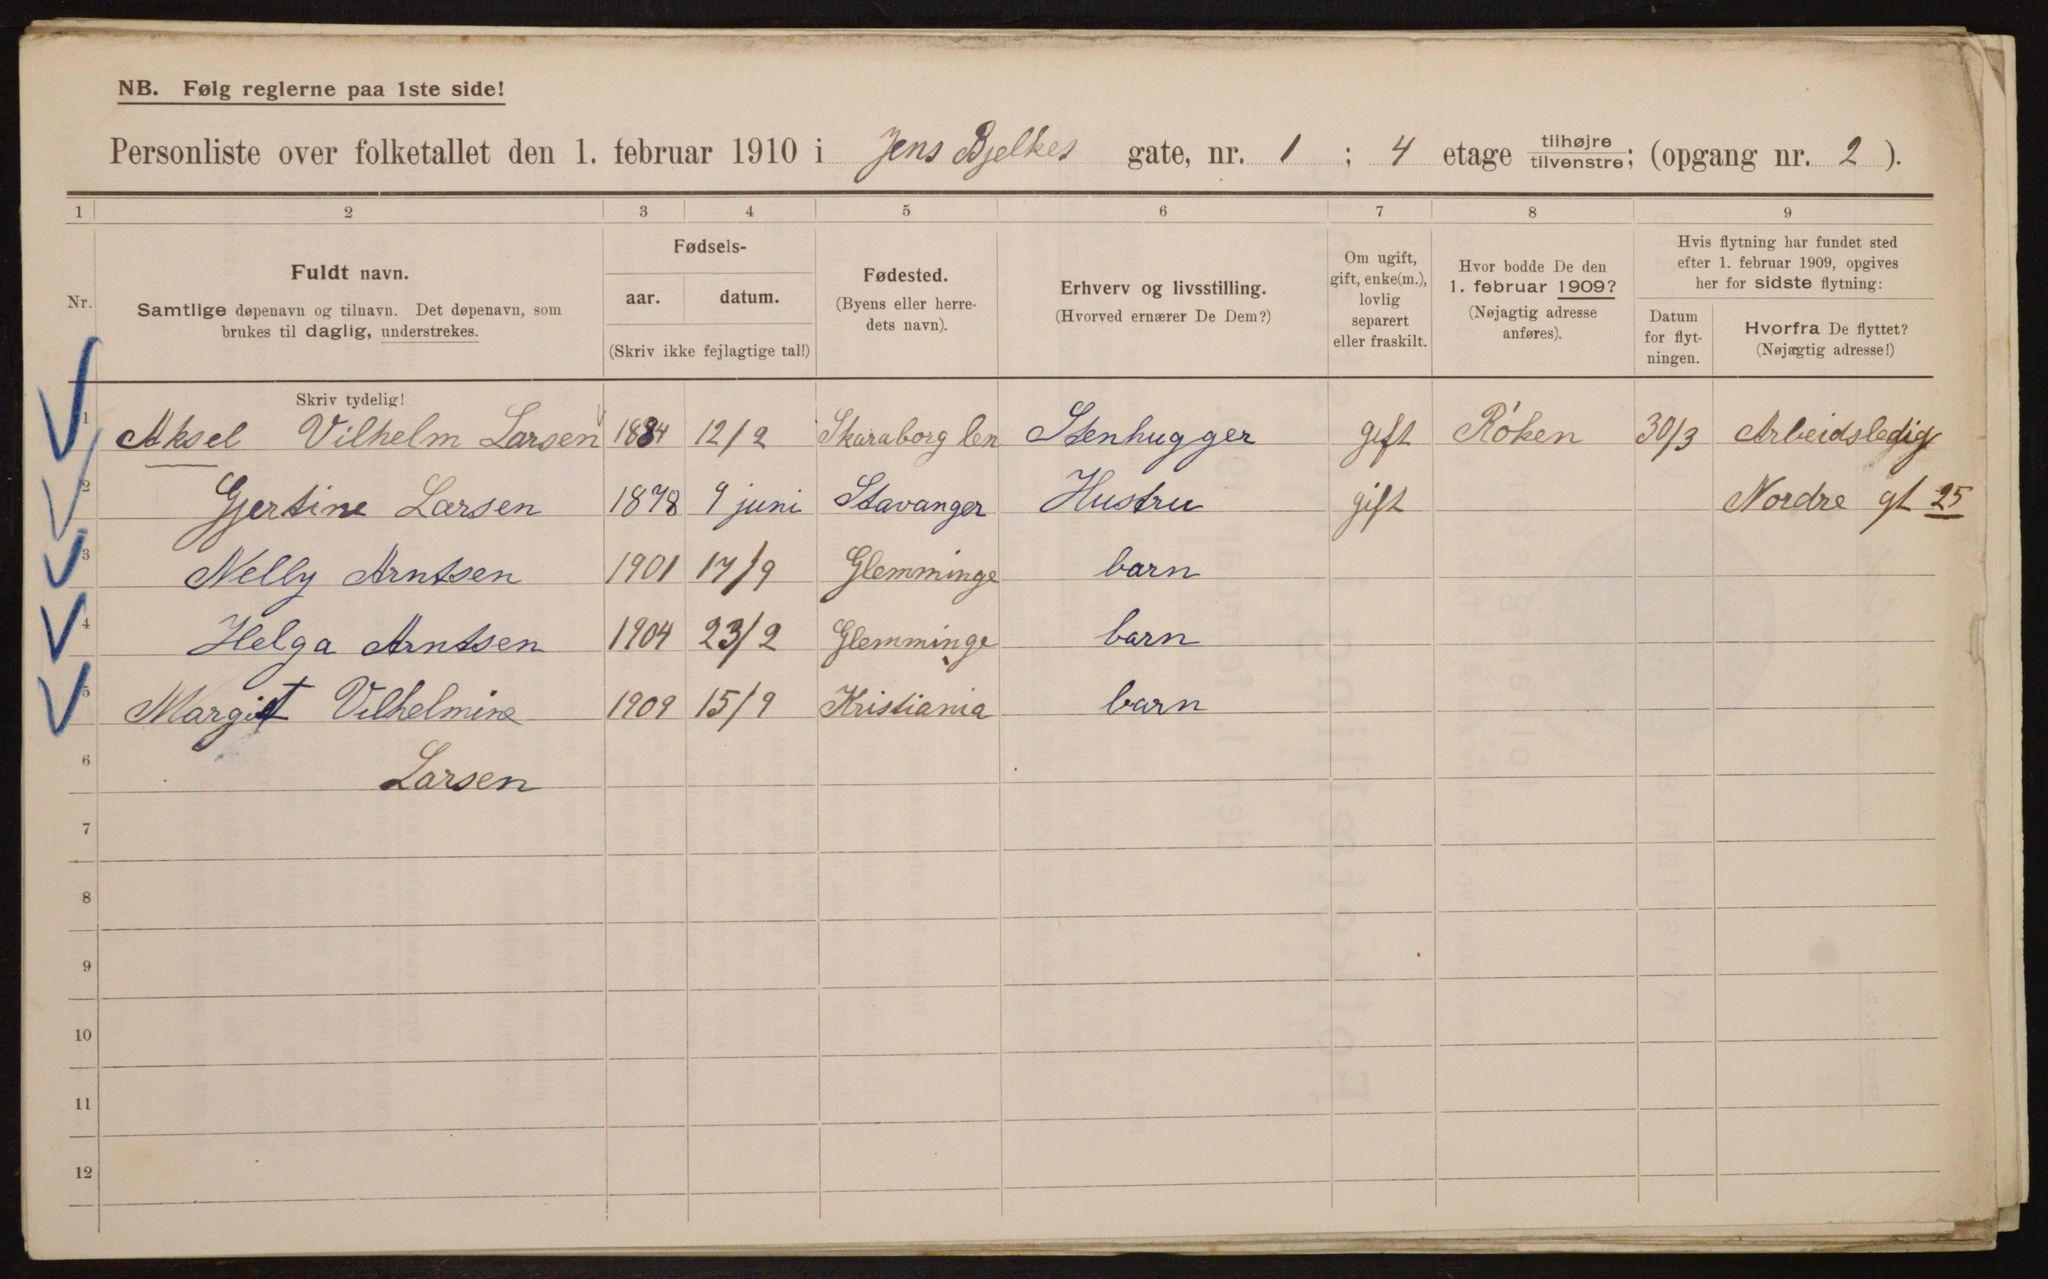 NB. Følg reglerne paa 1ste side!
Personliste over folketallet den 1. februar 1910 i Jens Bjelkes gate, nr. 1 ; 4 etage tilhøjre/tilvenstre; (opgang nr. 2 ).
1 2 3 4 5 6 7 8 9
Nr.
Fuldt navn.
Samtlige døpenavn og tilnavn. Det døpenavn, som
brukes til daglig, understrekes.
Skriv tydelig!
Fødsels-
aar. datum.
(Skriv ikke fejlagtige tal!)
Fødested.
(Byens eller herre-
dets navn).
Erhverv og livsstilling.
(Hvorved ernærer De Dem?)
Om ugift,
gift, enke(m.),
lovlig
separert
eller fraskilt.
Hvor bodde De den
1. februar 1909?
(Nøjagtig adresse
anføres).
Hvis flytning har fundet sted
efter 1. februar 1909, opgives
her for sidste flytning:
Datum
for flyt-
ningen.
Hvorfra De flyttet?
(Nøjagtig adresse!)
1 Aksel Vilhelm Larsen 1884 12/2 Skaraborg len Stenhugger gift Röken 30/3 Arbeidsledig
2 Gjertine Larsen 1878 9 juni Stavanger Hustru gift Nordre gt 25
3 Nelly Arntsen 1901 17/9 Glemminge barn
4 Helga Arntsen 1904 23/2 Glemminge barn
5 Margit Vilhelmine 1909 15/9 Kristiania barn
6 Larsen
7
8
9
10
11
12